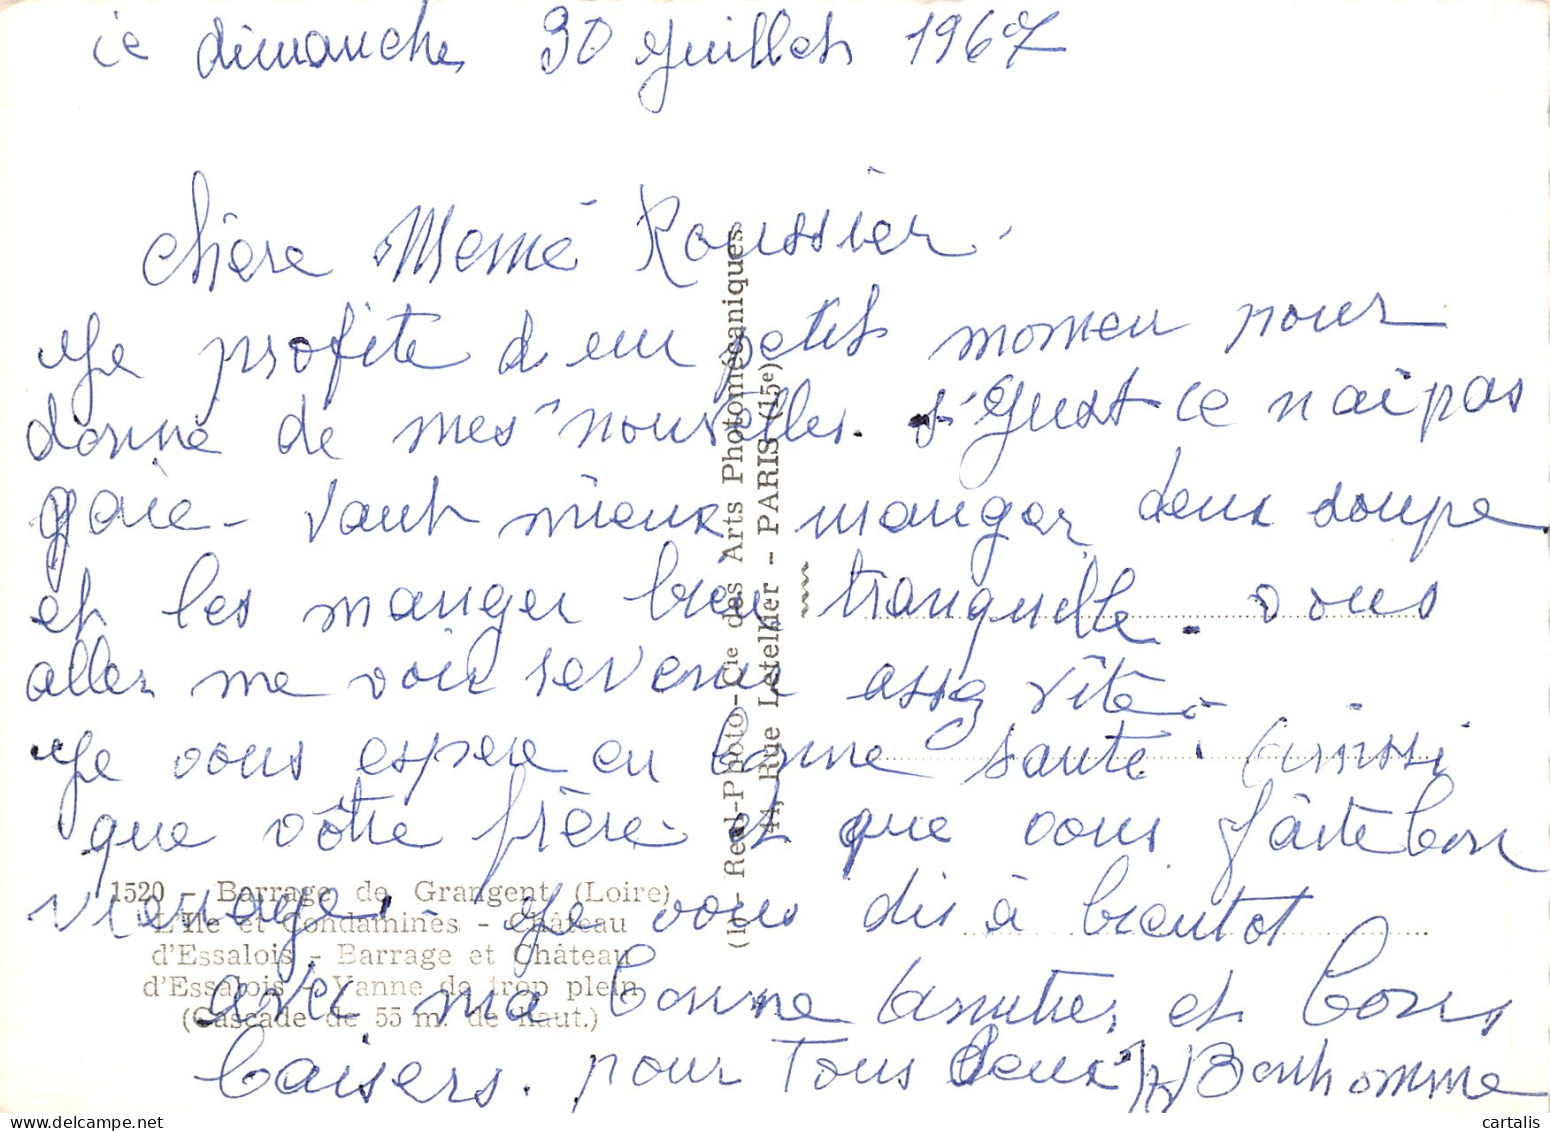 ie dimanche 30 Juillet 1967
Chère Memé Roussier.
Je profite d eun petit momen pour
donné de mes nouvelles. s'Gust ce n ai pas
gaie - vaut mieux manger deux soupe
et les manger bien tranquille. vous
aller me voir revenir assez vîte.
Je vous espere en bonne santé. ainssi
que vôtre frère et que vous fâite bon
vienage. Je vous dis à bientot
avec ma bonne amitier et bons
baisers. pour Tous deux Bonhomme
1520 - Barrage de Grangent (Loire)
L'Ile et Condamines - Château
d'Essalois - Barrage et Château
d'Essalois - Vanne de trop plein
(Cascade de 55 m. de haut.)
Real-Photo-Cie des Arts Photomécaniques
44, Rue Letellier - PARIS (15e)
cartalis